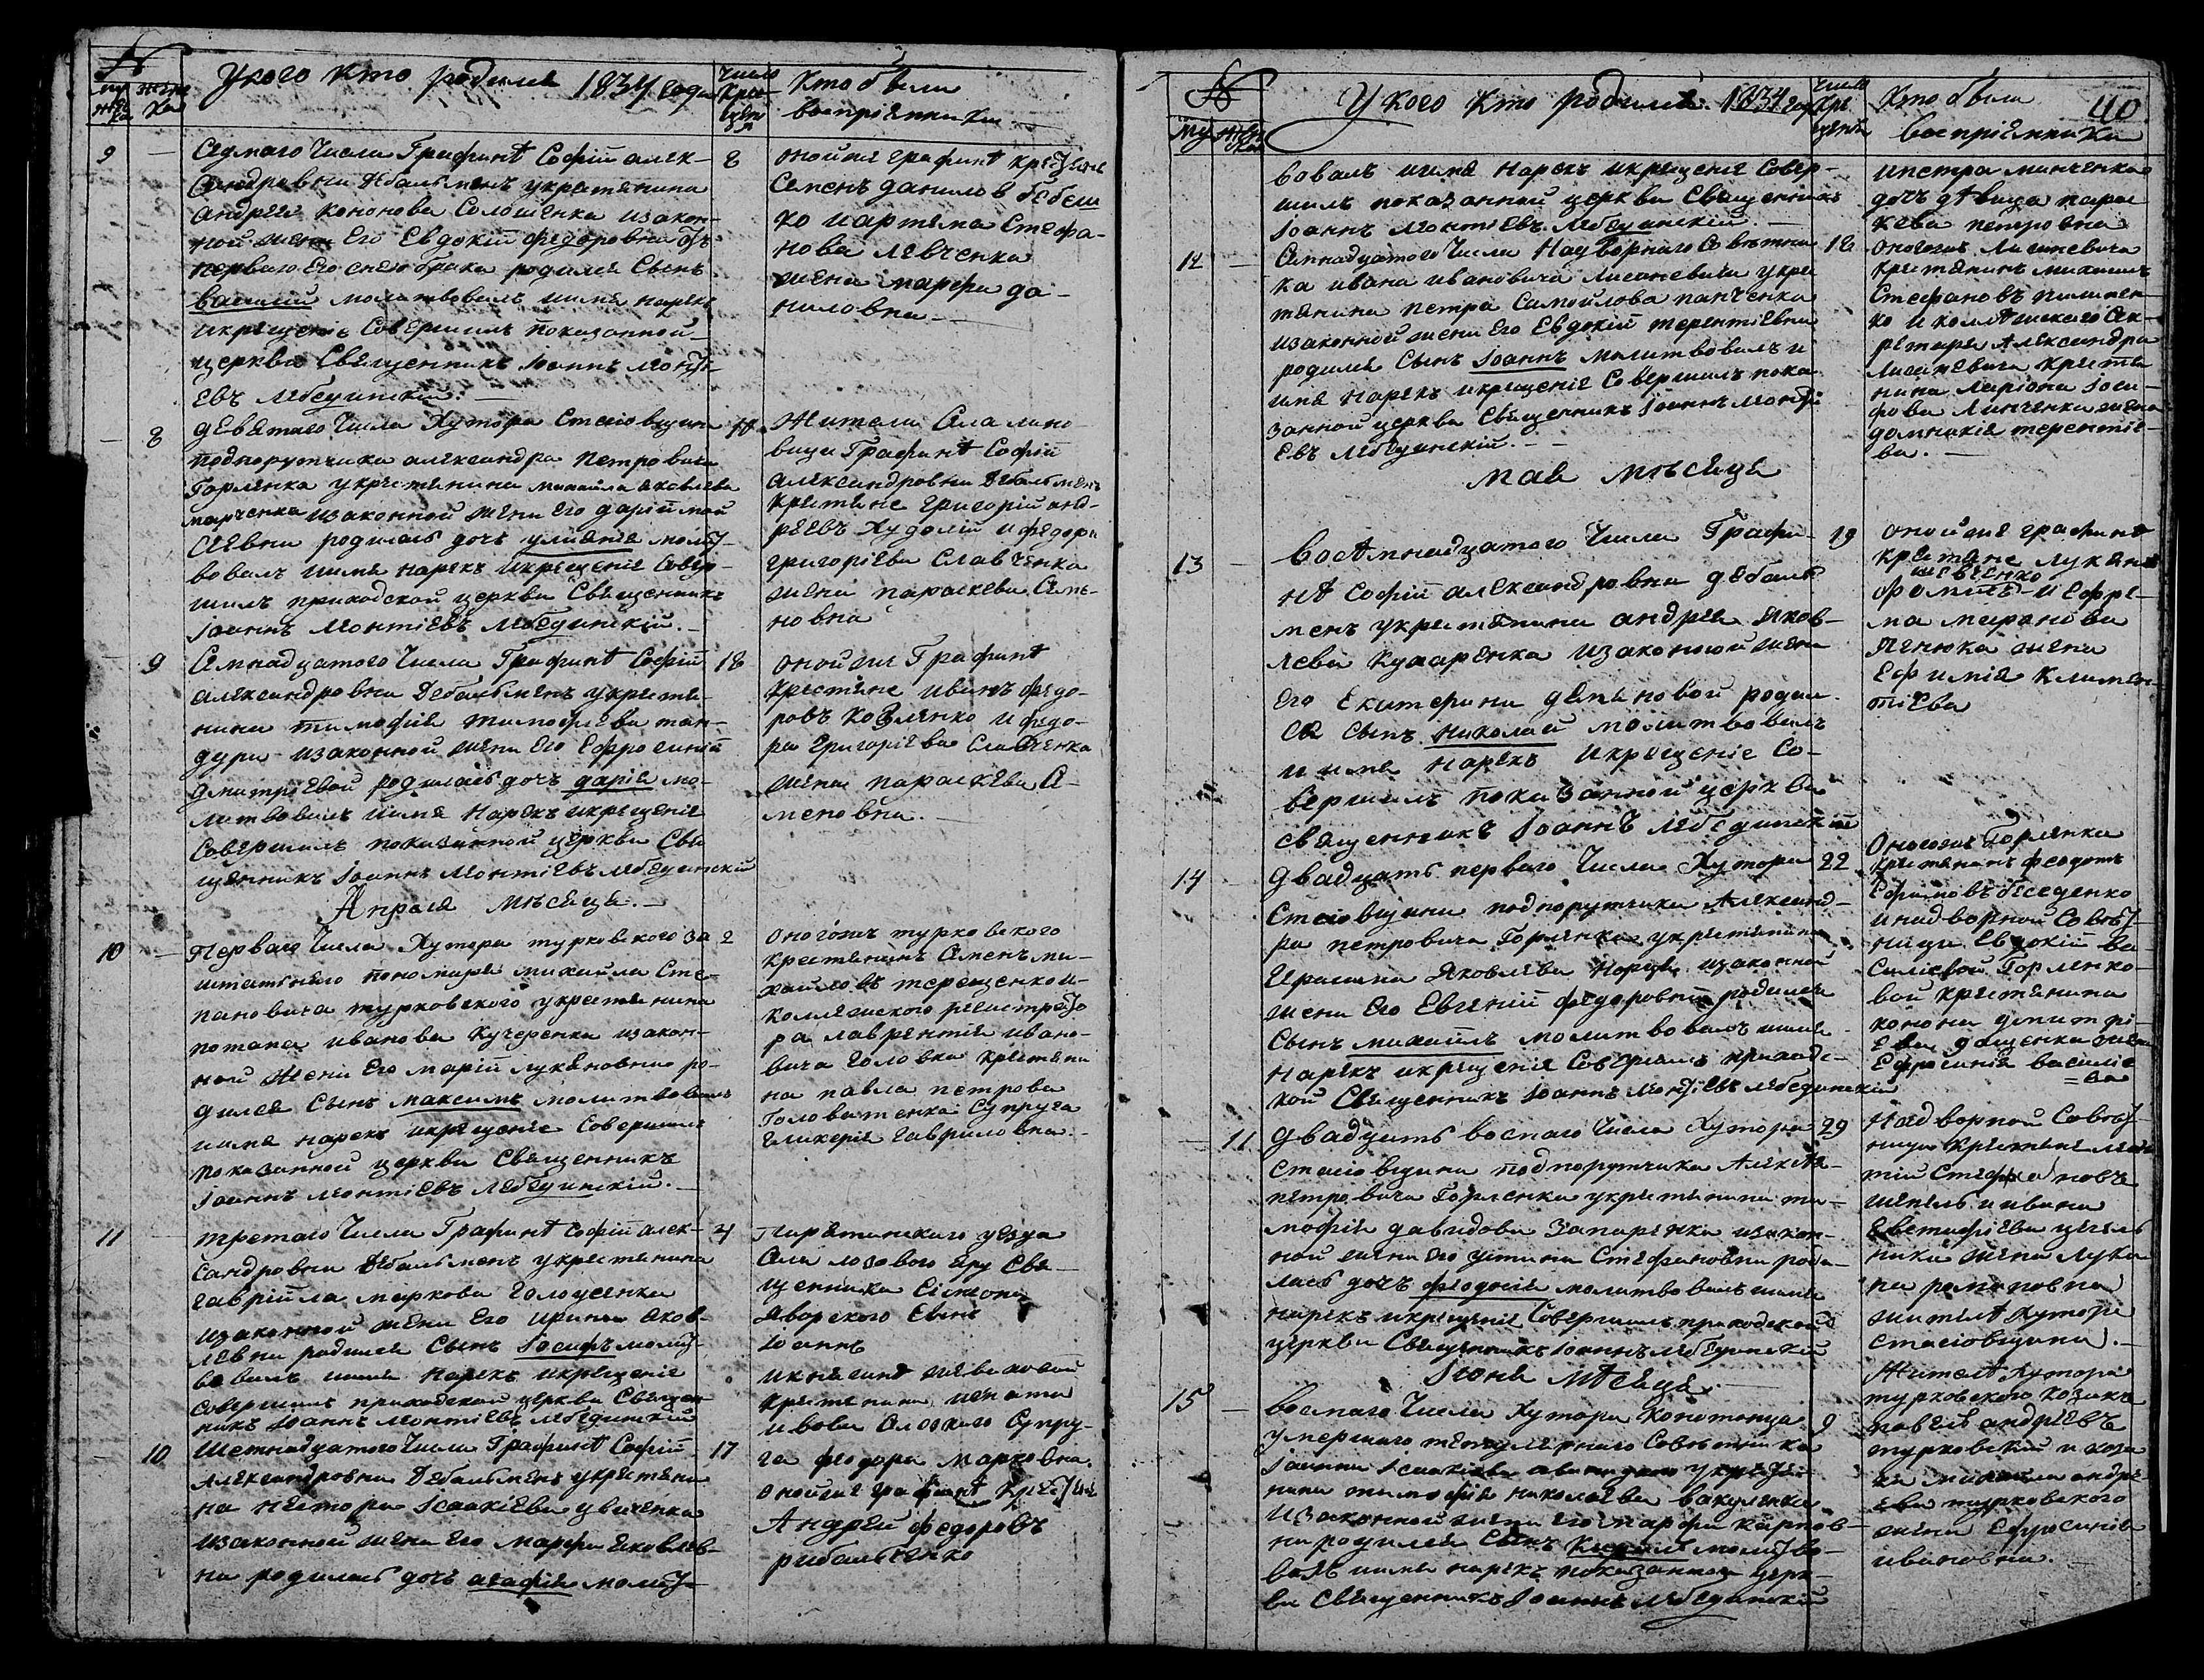 №
У кого кто родился 1834 года
число
кре-
щен
я
Кто были
восприемники
му
жес
ка
жене
ка
9
Седмаго числа Графинѣ Софіи алек-
сандровны Дебальменъ укрестянина
андрея кононова Солошенка изакон-
ной жены Его Евдокіи федоровны отъ
перваго его снею брака родился Сынъ
василій молитвовалъ иимя нарекъ
икрещеніе Совершилъ показанной
церкви Священникъ Іоаннъ Леонті-
евъ Лебединскій.
8
онойже графинѣ крестяне
Семенъ данилов бебеш
ко иартема Стефа-
нова левченка
жена марфа да-
ниловна
8
девятаго числа Хутора Стасіовщини
подпорутчика александра Петровича
Горленка укрестянина михайла яковлева
марченка изаконной жены его даріи мой
сеевны родилась дочь уліянія молит-
вовалъ иимя нарекъ икрещеніе Совер-
шилъ приходской церкви Священникъ
Іоаннъ Леонтіевъ Лебединскій.
10
Жители Села
вици Графинѣ Софіи
александровны Дебальменъ
крестяне григорій анд-
реевъ Худолій ифедора
григоріева Славченка
жена параскева Симе-
новна
9
Семнадцатого числа Графинѣ Софіи
александровны Дебальменъ укрестя-
нина тимофія тимофѣева тан-
дури изаконной жены Его Ефросиніи
дмитріевой родилась дочь дарія мо-
литвовалъ иимя нарекъ икрещеніе
Совершилъ показанной церкви Свя
щенникъ Іоаннъ Леонтіевъ лебединскій
18
онойже Графинѣ
крестяне иванъ федо-
ровъ козленко ифедо-
ра григоріева Славченка
жена параскева Се-
меновна.
Апреля мѣсяца.
10
Перваго числа Хутора турковского за
штатного пономаря михайла Сте-
пановича турковского укрестянина
потапа иванова Кучеренка изакон-
ной жены Его маріи лукяновны ро-
дился Сынъ максимъ молитвовалъ
иимя нарекъ икрещеніе Совершилъ
показанной церкви Священникъ
Іоаннъ Леонтіевъ Лебединскій.
2
оногожъ турковского
крестянинъ Семенъ ми-
хайловъ терещенко и
коллежского регистрато
ра лаврентія ивано-
вича Головка крестяни
на павла петрова
Головатенка Супруга
гликерія гавриловна.
11
третаго числа Графинѣ Софіи алек-
сандровны Дебальменъ укрестянина
гавріила маркова Голоусенка
изаконной жены Его ирины яков-
левны родился Сынъ Іосифъ молит-
вовалъ иимя нарекъ икрещеніе
Совершилъ приходской церкви Священ
никъ Іоаннъ Леонтіевъ лебединскій
4
Пирятинского уезда
Села лозового яру Свя
щенника Сімеона
яворского Сынъ
Іоаннъ
икнягинѣ
крестянина игната
Супру-
га феодора марковна.
10
Шестнадцатого числа Графинѣ Софіи
Александровны Дебальменъ укрестяни
на нестора Ісаакіева увиченка
изаконной жены его марфы яковлев-
ны родилась дочь агафія молит-
17
онойже графинѣ крестяне
Андрей федоровъ
рибальченко
№
У кого кто родился 1834 год
число
кре
щенія
Кто были
восприемники
40
му
жен
ка
вовалъ иимя нарекъ икрещеніе Совер-
шилъ показанной церкви Священникъ
Іоаннъ Леонтіевъ Лебединскій
ипетра минченка
дочъ дѣвица парас
кева петровна
12
Семнадцатого числа Надворнаго Совѣтни
ка ивана ивановича Лисаневича укрес
тянина петра Самойлова панченка
изаконной жени его Евдокіи терентіевны
родился Сынъ Іоаннъ молитвовалъ и
имя нарекъ икрещеніе Совершилъ пока
занной церкви Священникъ Іоаннъ Леонті
евъ Лебединскій.
18
оногожъ Лисаневича
крестянинъ михаилъ
Стефановъ пилипен-
ко иколлѣжского Сек-
ретаря Александра
Лисаневича крестя
нина ларіона Іоси-
фова Линченка жена
домникія терентіе-
ва.
мая мѣсяца
13
восѣмнадцатого числа Графи-
нѣ Софіи александровны дебаль
менъ укрестянина андрея яков-
лева кухаренка изаконной жены
его екатерини деменовой родил
ся сынъ николай молитвовалъ
иимя нарекъ икрещеніе Со-
вершилъ показанной церкви
священникъ Іоаннъ Лебединскій
19
онойже графинѣ
крестяне лукянъ
шевченко
фоминъ иефре-
ма миронова
пенюка жена
Ефимія климен
тіева
14
двадцать перваго числа Хутора
Стасіовщини подпорутчика Александ-
ра петровича Горленка укрестянина
Герасима Яковлева Норця изаконной
жены Его Евгеніи федоровны родился
Сынъ михаилъ молитвовалъ иимя
нарекъ икрещеніе Совершилъ приходс-
кой Священникъ Іоаннъ Леонтіевъ лебединскій
22
Оногожъ Горленка
крестянинъ феодотъ
Ефимовъ беседенко
инадворной Совет-
ници Евдокіи ва-
силіевой Горленко-
вой крестянина
конона дмитрі-
ева дащенка жена
Ефросинія василіе
=ва
11
двадцать восмаго числа Хутора
Стасіовщини подпорутчика Алекса-
петровича Горленка укрестянина ти-
мофія давидова Запаренка изакон-
ной жены Его устини Стефановны роди-
лась дочь феодосія молитвовалъ иимя
нарекъ икрещеніе Совершилъ приходской
церкви Священникъ Іоаннъ лебединскій
29
Надворной Совет-
ници крестяне леон
тій Стефановъ
шепель иивана
Евстафіева цегель
ника жена лукія
на романовна
жителѣ Хутора
Стасіовщини.
Іюня мѣсяца
15
восмаго числа Хутора Конотопца
умершаго титулярного Совѣтника
Іоанна Ісаакіева укрестя-
нина тимофія николаева вакуленка
изаконной жены его марфи карпов-
ны родился Сынъ молитво-
валъ иимя нарекъ показанной церк-
ви Священникъ Іоаннъ Лебединскій
9
Жителѣ Хутора
турковского козакъ
павелъ андреевъ
турковский икоза
ка михайла андре-
ева турковского
жена Ефросинія
ивановна.